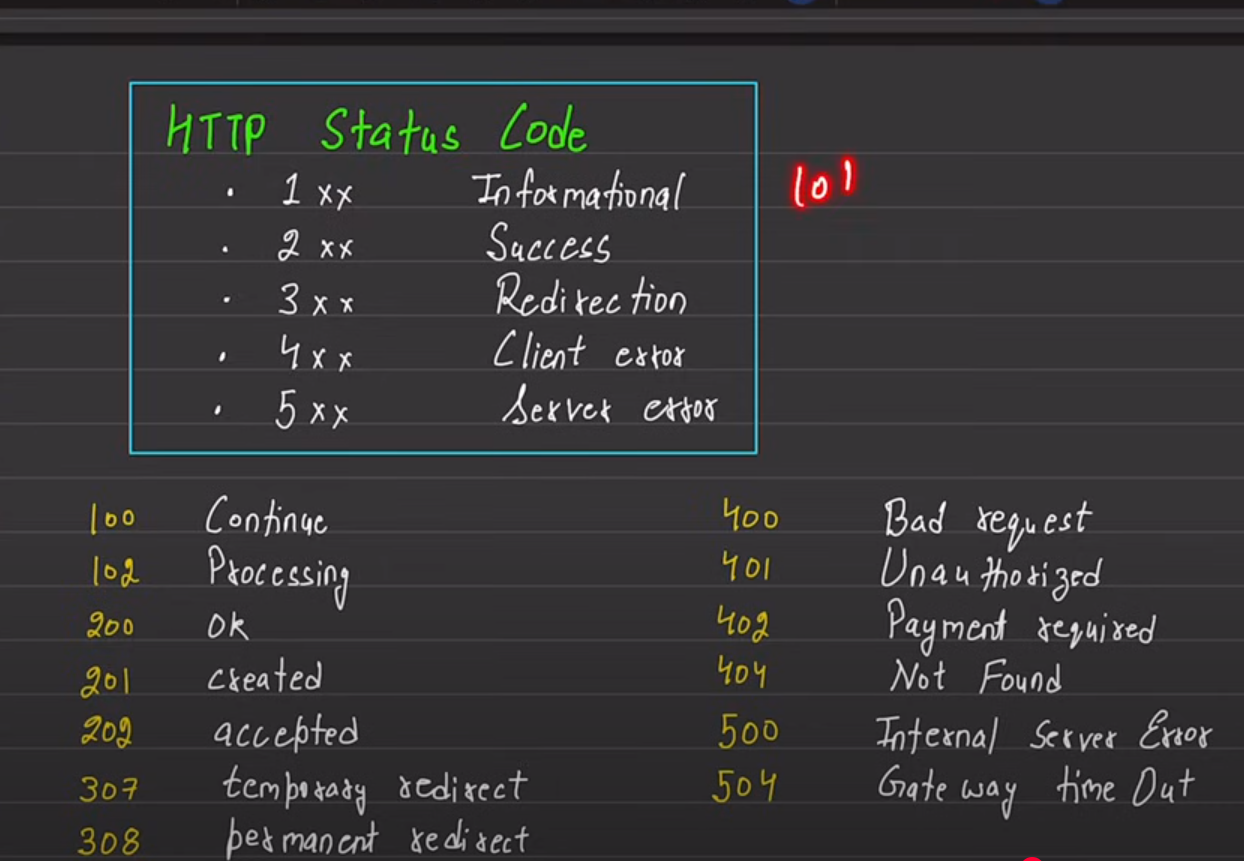 HTTP Status Code
· 1xx Informational 101
· 2xx Success
· 3xx Redirection
· 4xx Client error
· 5xx Server error
100 Continue
102 Processing
200 ok
201 created
202 accepted
307 temporary redirect
308 permanent redirect
400 Bad request
401 Unauthorized
402 Payment required
404 Not Found
500 Internal Server Error
504 Gateway time Out